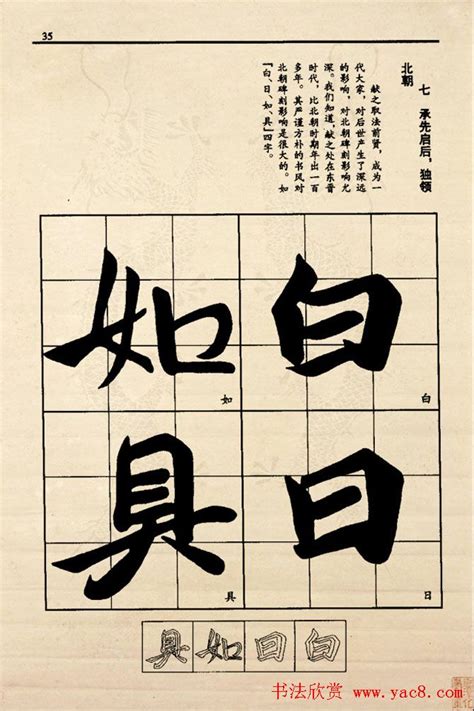 35
七 承先启后，独领
北朝
献之取法前贤，成为一
代大家，对后世产生了深远
的影响，对北朝碑刻影响尤
深。我们知道，献之处在东晋
时代，比北朝时期早出一百
多年。其严谨方朴的书风对
北朝碑刻影响是很大的。如
「白、日、如、具」四字。
白
白
日
日
如
如
具
具
白日如具
书法欣赏 www.yac8.com